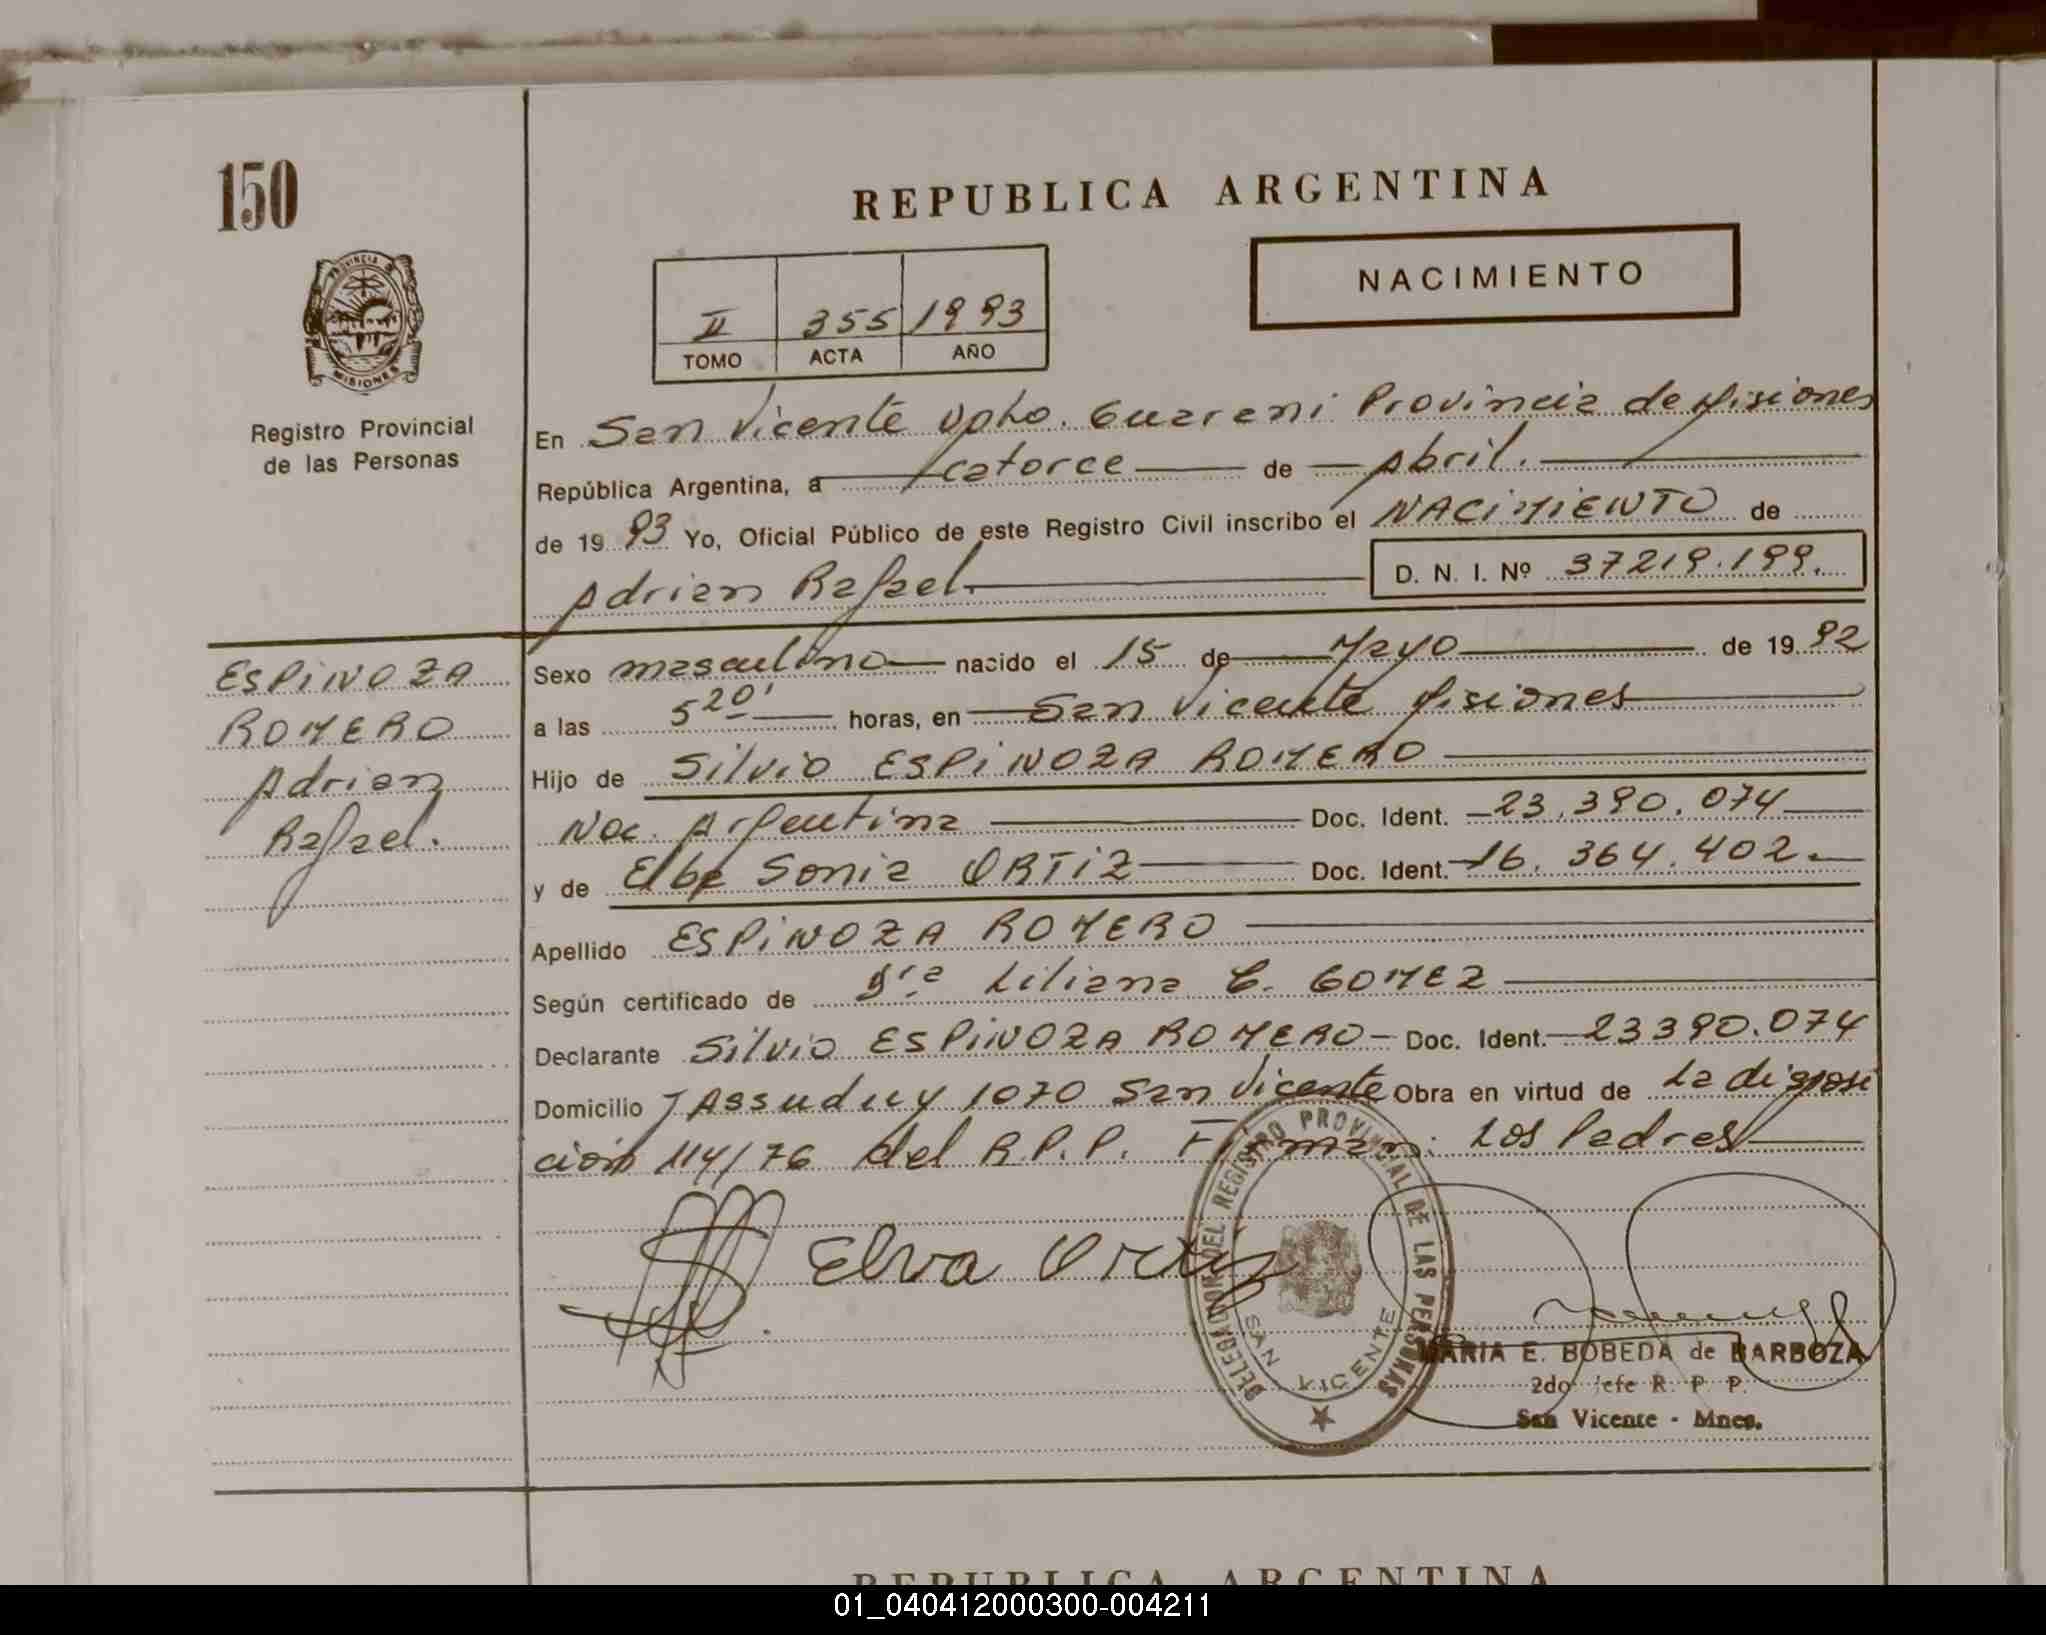 150
REPUBLICA ARGENTINA
NACIMIENTO
II 355 1993
TOMO ACTA AÑO
PROVINCIA D
MISIONES
Registro Provincial
de las Personas
En San Vicente Dpto. Guarani Provincia de Misiones
República Argentina, a catorce de Abril.
de 1993 Yo, Oficial Público de este Registro Civil inscribo el NACIMIENTO de
Adrian Rafael
D. N. I. Nº 37219.199.
ESPINOZA
ROMERO
Adrian
Rafael.
Sexo masculino nacido el 15 de Mayo de 1992
a las 5 20' horas, en San Vicente Misiones
Hijo de Silvio ESPINOZA ROMERO
Nac. Argentina Doc. Ident. 23.390.074
y de Elba Sonia ORTIZ Doc. Ident. 16.364.402.
Apellido ESPINOZA ROMERO
Según certificado de Dra Liliana C. GOMEZ
Declarante Silvio ESPINOZA ROMERO - Doc. Ident. 23390.074
Domicilio J Assuduy 1070 San Vicente Obra en virtud de La disposi
ción 114/76 del R.P.P. Firman: Los Padres
Elva Ortiz
DELEGACION DEL REGISTRO PROVINCIAL DE LAS PERSONAS
SAN VICENTE
MARIA E. BOBEDA de BARBOZA
2do Jefe R. P. P.
San Vicente - Mnes.
REPUBLICA ARGENTINA
01_040412000300-004211